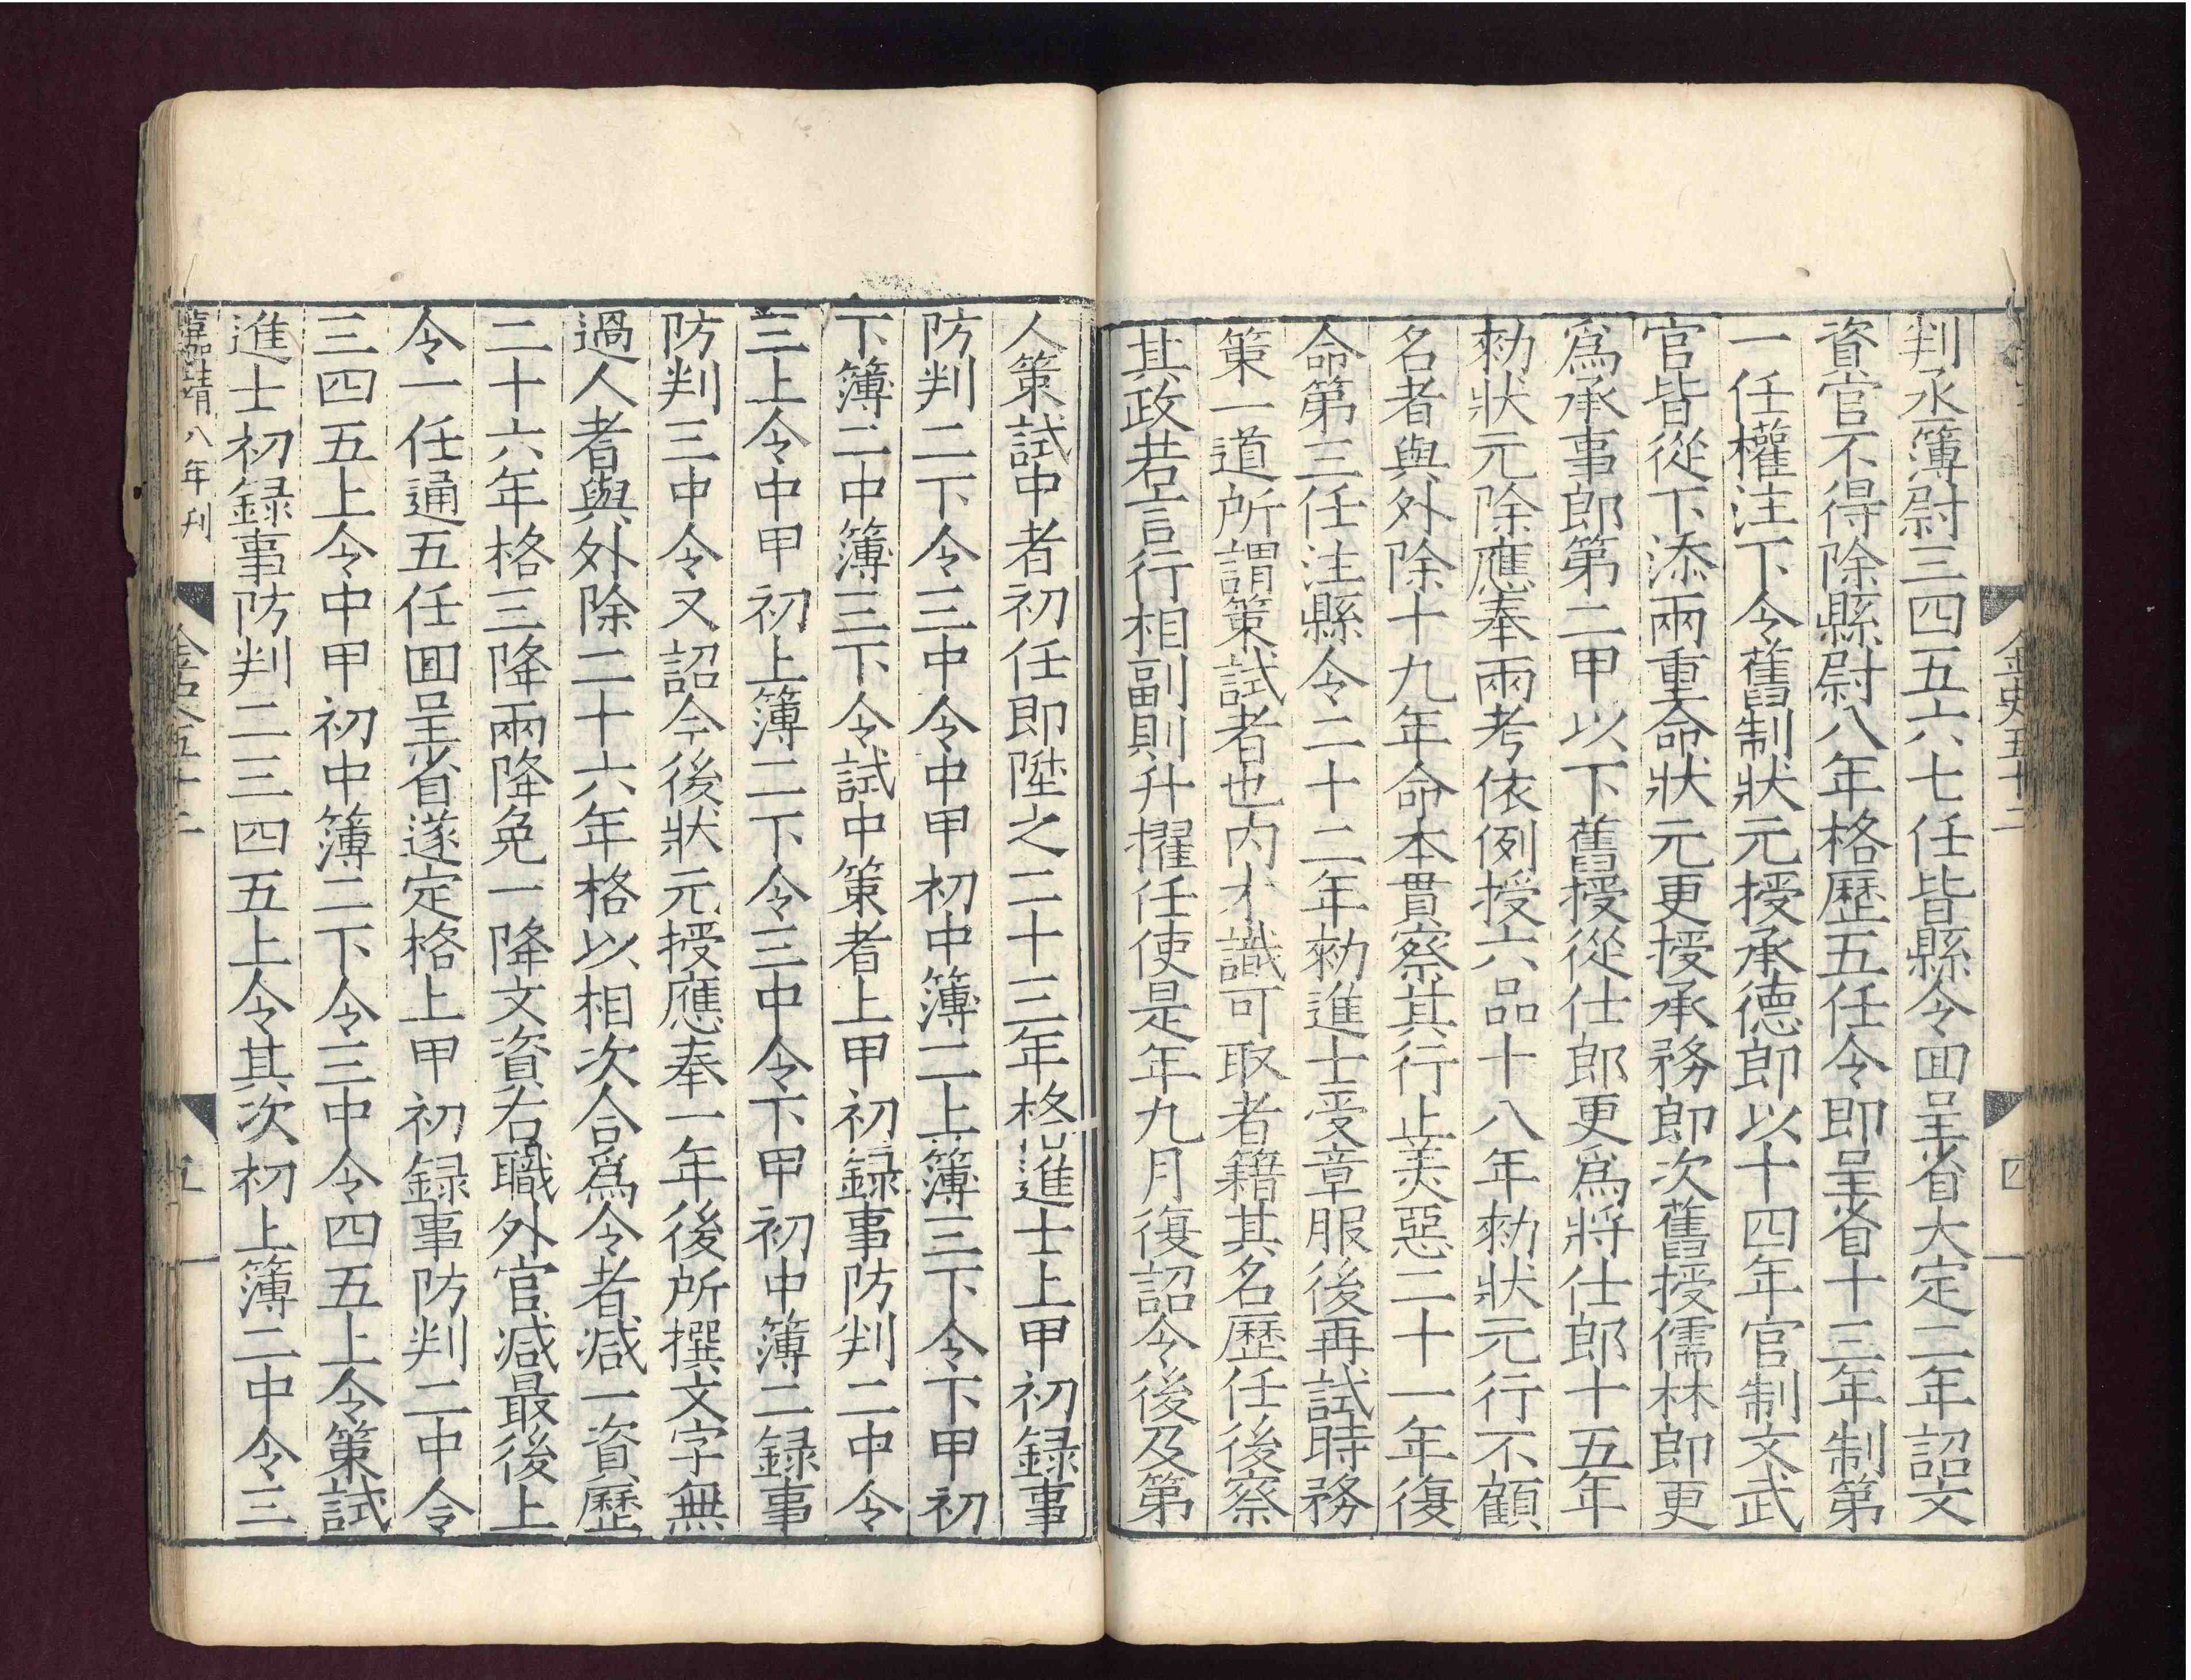 金史五十二
四
判丞簿尉三四五六七任皆縣令囬呈省大定二年詔文
資官不得除縣尉八年格歷五任令即呈省十三年制第
一任權注下令舊制狀元授承德郎以十四年官制文武
官皆從下添兩重命狀元更授承務郎次舊授儒林郎更
爲承事郎第二甲以下舊授從仕郎更爲將仕郎十五年
勑狀元除應奉兩考依例授六品十八年勑狀元行不顧
名者與外除十九年命本貫察其行止美惡二十一年復
命第三任注縣令二十二年勑進士受章服後再試時務
策一道所謂策試者也内才識可取者籍其名歷任後察
其政若言行相副則升擢任使是年九月復詔今後及第
人策試中者初任即陞之二十三年格進士上甲初録事
防判二下令三中令中甲初中簿二上簿三下令下甲初
下簿二中簿三下令試中策者上甲初録事防判二中令
三上令中甲初上簿二下令三中令下甲初中簿二録事
防判三中令又詔今後狀元授應奉一年後所撰文字無
過人者與外除二十六年格以相次合爲令者减一資歷
二十六年格三降兩降免一降文資右職外官减最後上
令一任通五任囬呈省遂定格上甲初録事防判二中令
三四五上令中甲初中簿二下令三中令四五上令策試
進士初録事防判二三四五上令其次初上簿二中令三
嘉靖八年刊
金史五十二
五